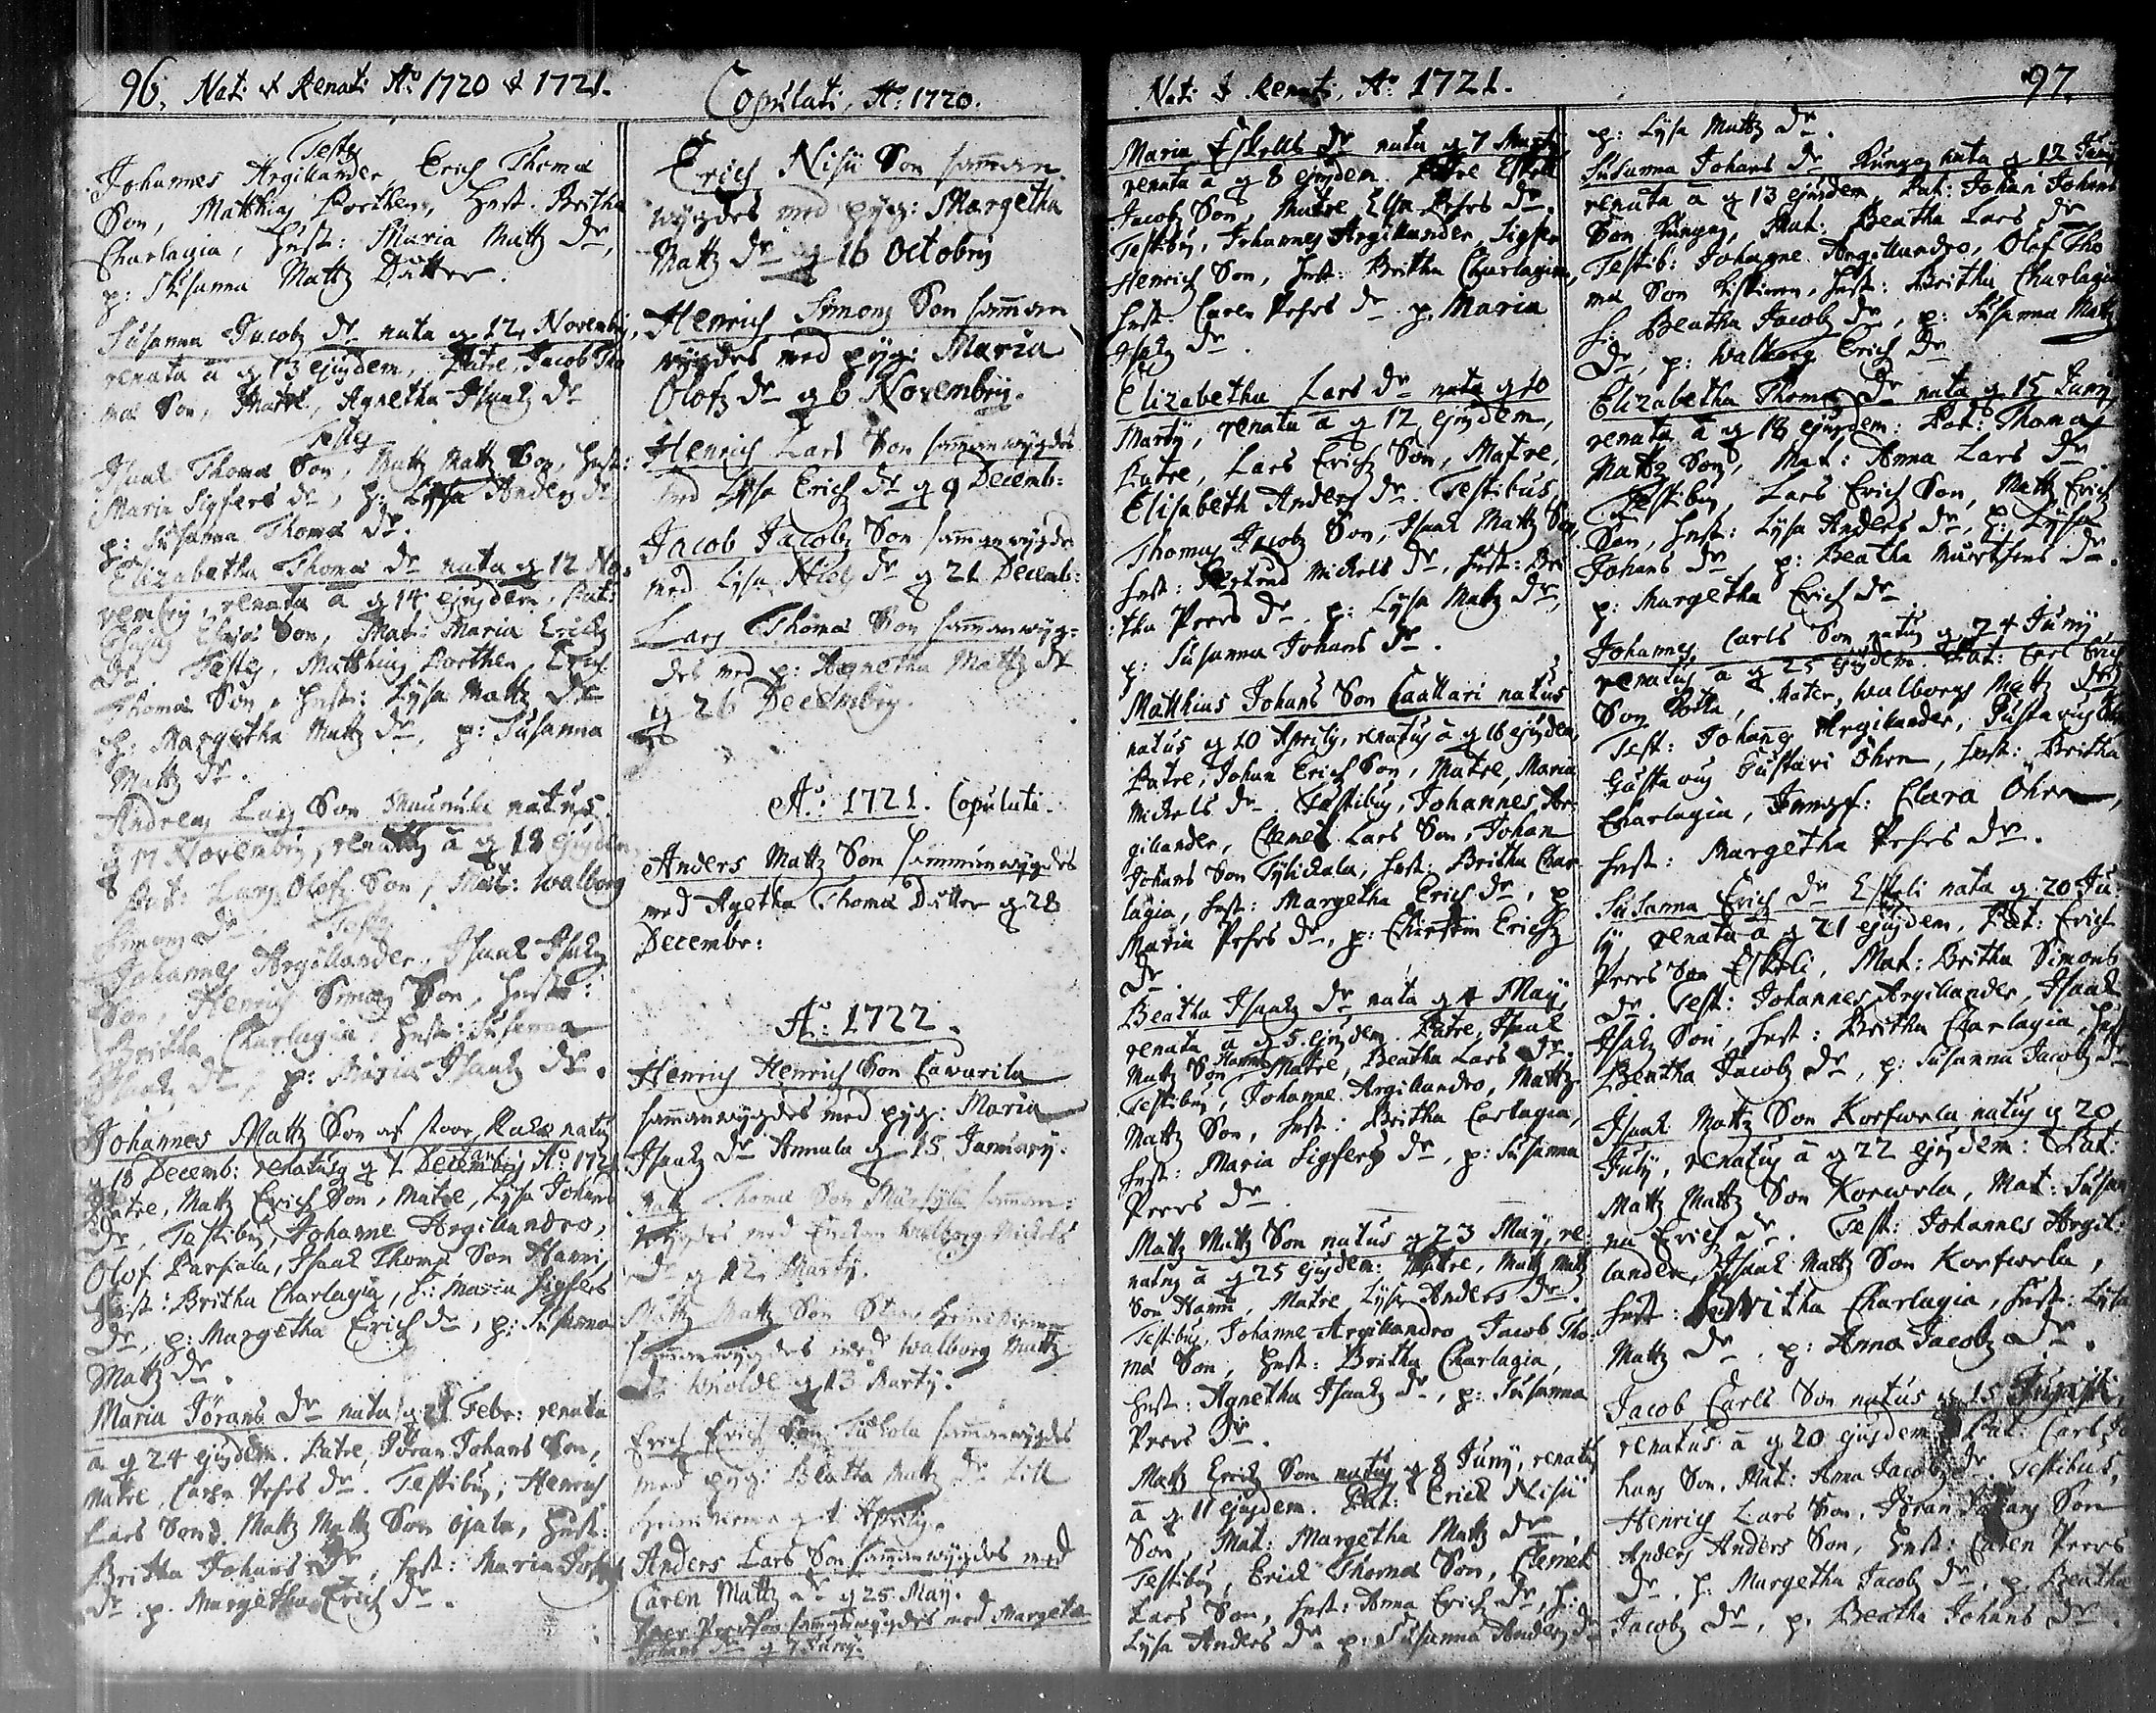 96. Nati & Renati Aō 1720 & 1721.
Testes
Johannes Argillander, Erich Thomæ
Son, Matthias Porthen, Hust. Britha
Charlagia, Hust: Maria Matz dr,
p: Susanna Mattz Dotter.
Susanna Jacobz dr nata q 12 Novembris,
renata a q 13 ejusdem, Patre, Jacob Tho
mæ Son, Matre, Agnetha Isaakz dr
Testes
Isaak Thomæ Son, Mattz Mattz Son, Hust:
Maria Sigfers dr, H: Lysa Anders dr
p: Susanna Thomæ dr.
Elizabetha Thomæ dr nata q 12 No
vembris, renata a q 14 ejusdem, Pat:
Son, Mat: Maria Erichz
dr. Testes, Matthias Porthen, Erich
Thomæ Son, Hust: Lysa Mattz dr
H: Margetha Mattz dr, p: Susanna
Mattz dr.
Andreas Lars Son natus
q 17 Novembris, renatus a q 18 ejusdem
Pat: Lars Olofz Son, Mat: Walborg
Simons dr. Testes
Johannes Argillander, Isaak Isakz
Son, Henrich Simons Son, Hust:
Britha Charlagia, Hust: Susanna
Isaakz dr, p: Maria Isaakz dr.
Johannes Mattz Son af stoor natus
q 18 Decemb: renatus q 7 Aō 172
Patre, Mattz Erich Son, Matre, Lysa Johans
dr, Testibus, Johanne Argillandro,
Olof Parsiala, Isaak Thomæ Son Hanni,
Hust: Britha Charlagia, H: Maria Sigfers
dr, p: Margetha Erich dr, p: Susanna
Mattz dr.
Maria Jörans dr nata q 21 Febr: renata
a q 24 ejusdem. Patre, Jöran Johans Son,
Matre, Caren Pehrs dr. Testibus, Henrich
Lars Son, Mattz Mattz Son Ojala, Hust:
Britha Johans dr, Hust: Maria
dr p. Margetha Erich dr.
Copulati, Aō: 1720.
Erich Nisii Son samman
wygdes med pyg: Margetha
Mattz dr q 16 Octobris
Henrich Simons Son samman
wygdes med pyg: Maria
Olofz dr q 6 Novembris.
Henrich Lars Son sammanwygdes
med Lysa Erich dr q 9 Decemb:
Jacob Jacobz Son sammanwygdes
med Lysa dr q 21 Decemb:
Lars Thomæ Son sammanwyg-
des med p: Agnetha Mattz dr
q 26 Decembris.
Aō: 1721. Copulati.
Anders Mattz Son sammanwygdes
med Agetha Thomæ Dotter q 28
Decembr:
Aō: 1722.
Henrich Henrich Son Cavarila
sammanwygdes med pyg: Maria
Isaakz dr Annala q 15 January.
Matz Thomæ Son samman-
wygdes med Enckan Walborg Michels
dr q 12 Marty.
Mattz Mattz Son
sammanwygdes med Walborg Mattz
dr q 13 Marty.
Erich Erich Son sammanwygdes
med pyg: Beatha Mattz dr Lill
q 1 Aprilis.
Anders Lars Son sammanwygdes med
Caren Mattz dr q 25 May.
sammanwygdes med Margeta
Johans dr q 7 Juny.
Nati & Renati, Aō: 1721.
Maria Eskells dr nata q 7 Marty
renata a q 8 ejusdem. Patre Eskell
Jacobz Son, Matre Elsa Pehrs dr.
Testibus, Johannes Argillander, Sigfer
Henrich Son, Hust: Britha Charlagia,
Hust: Caren Pehrs dr p. Maria
Isakz dr.
Elizabetha Lars dr nata q 10
Marty, renata a q 12 ejusdem,
Patre, Lars Erichz Son, Matre,
Elisabeth Anders dr. Testibus,
Thomas Jacobz Son, Isaak Mattz Son,
Hust: Gertrud Michels dr, Hust: Bri
tha Peers dr. p: Lysa Matz dr,
p: Susanna Johans dr.
Matthias Johans Son Caattari natus
natus q 10 Aprilis, renatus a q 16 ejusdem,
Patre, Johan Erich Son, Matre, Maria
Michels dr. Testibus, Johannes Ar
gillander, Clemet Lars Son, Johan
Johans Son Tylickala, Hust: Britha Char
lagia, Hust: Margetha Erich dr, p
Maria Pehrs dr, p: Cherstin Erichz
dr.
Beatha Isaakz dr nata q 4 May,
renata a q 5 ejusdem. Patre, Isaak
Mattz Son Hanni Matre, Beatha Lars dr.
Testibus, Johanne Argillandro, Mattz
Mattz Son, Hust: Britha Carlagia,
Hust: Maria Sigfers dr, p: Susanna
Peers dr
Mattz Mattz Son natus q 23 May, re
natus a q 25 ejusdem: Patre, Mattz Mattz
Son Hanni, Matre Lysa Anders dr.
Testibus, Johanne Argillandro Jacob Tho
mæ Son, Hust: Britha Charlagia,
Hust: Agnetha Isaakz dr, p: Susanna
Peers dr.
Mattz Erich Son natus q 8 Juny, renatus
a q 11 ejusdem. Pat: Erich Nisii
Son, Mat: Margetha Mattz dr,
Testibus, Erich Thomæ Son, Clemet
Lars Son, Hust: Anna Erich dr, H:
Lysa Anders dr p: Susanna Anders dr
97.
p: Lysa Mattz dr.
Susanna Johans dr Kungas nata q 12 Juny
renata a q 13 ejusdem Pat: Johan Johans
Son Kungas, Mat: Beatha Lars dr
Testib: Johanne Argillandro, Olof Tho
mæ Son, Hust: Britha Charlagia
H: Beatha Jacobz dr, p: Susanna Mattz
dr, p: Walborg Erich dr
Elizabetha Thomæ dr nata q 15 Juny,
renata a q 18 ejusdem: Pat: Thomas
Mattz Son, Mat: Anna Lars dr.
Testibus, Lars Erich Son, Mattz Erich
Son, Hust: Lysa Anders dr, H: Lysa
Johans dr, p: Beatha Martens dr.
p: Margetha Erich dr
Johannes Carls Son natus q 24 Juny
renatus a q 25 ejusdem. Pat: Carl Erich
Son, Mater, Walborg Mattz dr,
Test: Johannes Argillander, Gustavus
Gustavus Gustavi Ohrn, Hust: Britha
Charlagia, Jumgf: Clara Ohrn,
Hust: Margetha Pehrs dr.
Susanna Erich dr Eskeli nata q 20 Ju
ly, renata a q 21 ejusdem, Pat: Erich
Peers Son Eskeli, Mat: Britha Simons
dr. Test: Johannes Argillander, Isaak
Isakz Son, Hust: Britha Charlagia, Hust
Beatha Jacobz dr, p: Susanna Jacobz dr
Isaak Mattz Son Korfwela natus q 20
July, renatus a q 22 ejusdem: Pat:
Mattz Mattz Son Korwela, Mat: Susan
na Erich dr. Test: Johannes Argil:
lander, Isaak Mattz Son Korfwela,
Hust: Britha Charlagia, Hust: Lysa
Mattz dr. p: Anna Jacobz dr.
Jacob Carls Son natus q 15 Augusti,
renatus a q 20 ejusdem Pat: Carl Jo
hans Son, Mat: Anna Jacobz dr. Testibus,
Henrich Lars Son, Jöran Johans Son
Anders Anders Son, Hust: Caren Peers
dr, H: Margetha Jacobz dr, p. Beatha
Jacobz dr, p. Beatha Johans dr.